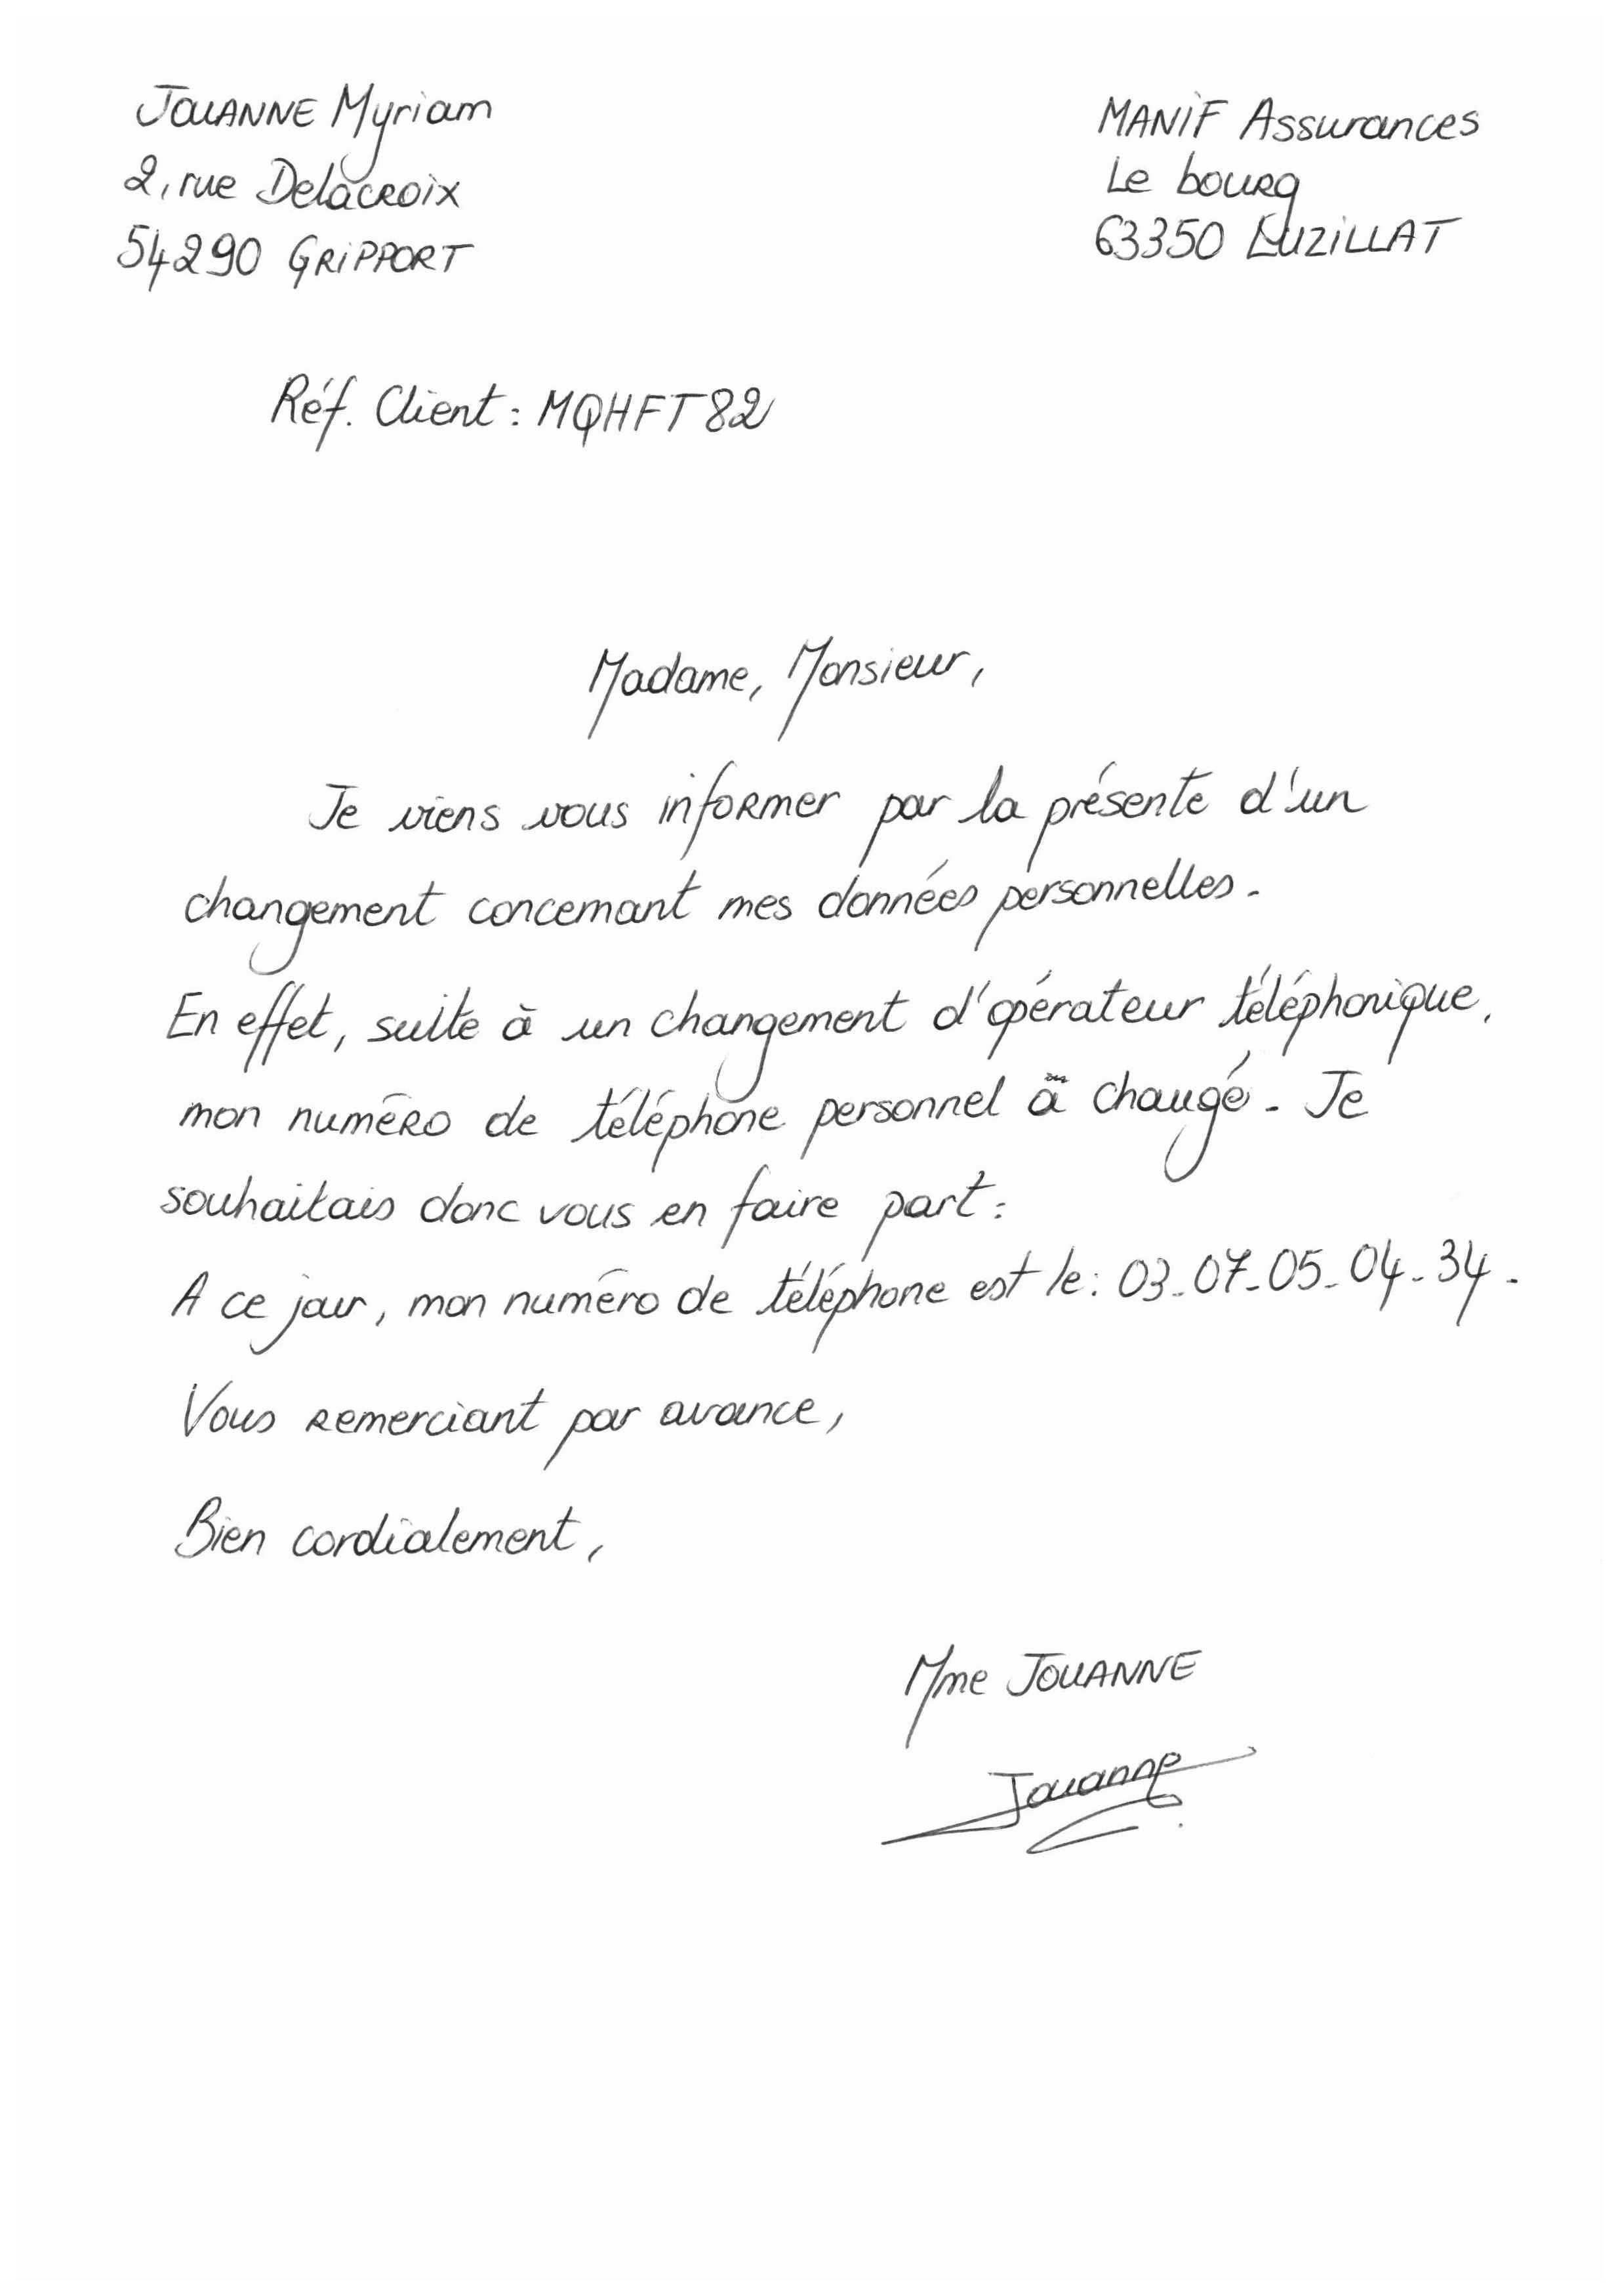 JOUANNE Myriam
2, rue Delacroix
54290 GRIPPORT
MANIF Assurances
Le bourg
63350 LUZILLAT
Réf. Client : MQHFT82
Madame, Monsieur,
Je viens vous informer par la présente d'un
changement concernant mes données personnelles.
En effet, suite à un changement d'opérateur téléphonique,
mon numéro de téléphone personnel a changé. Je
souhaitais donc vous en faire part :
A ce jour, mon numéro de téléphone est le : 03-07-05-04-34.
Vous remerciant par avance,
Bien cordialement,
Mme JOUANNE
Jouanne